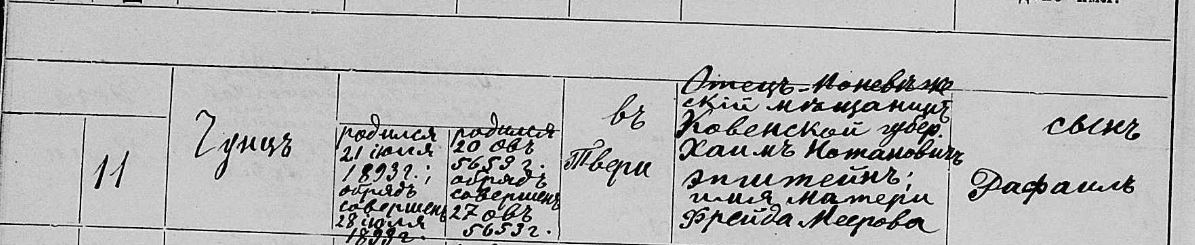 11
Гунцъ
родился
21 іюля
1893 г.;
обрядъ
совершенъ
28 іюля
1893 г.
родился
20 овъ
5653 г.
обрядъ
совершенъ
27 овъ
5653 г.
въ
Твери
Отецъ - Поневѣже
скій мѣщанинъ
Ковенской губер.
Хаимъ Нотановичъ
Эпштейнъ;
имя матери
Фрейда Меерова
сынъ
Рафаилъ